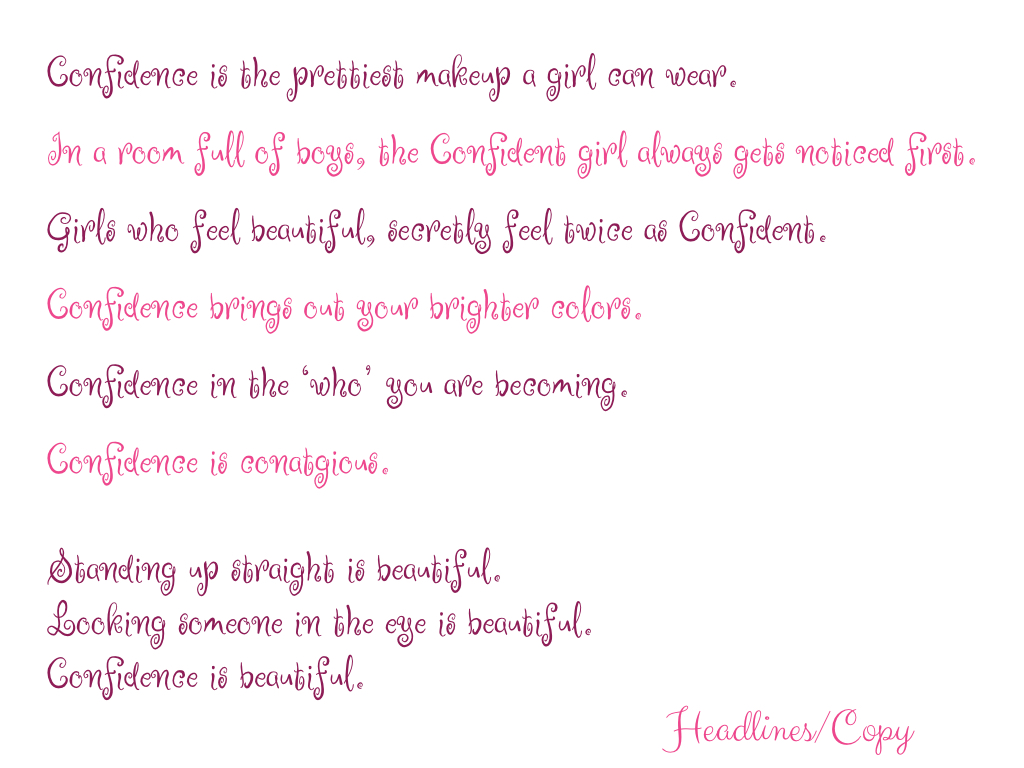 Confidence is the prettiest makeup a girl can wear.
In a room full of boys, the Confident girl always gets noticed first.
Girls who feel beautiful, secretly feel twice as Confident.
Confidence brings out your brighter colors.
Confidence in the ‘who’ you are becoming.
Confidence is conatgious.
Standing up straight is beautiful.
Looking someone in the eye is beautiful.
Confidence is beautiful.
Headlines/Copy